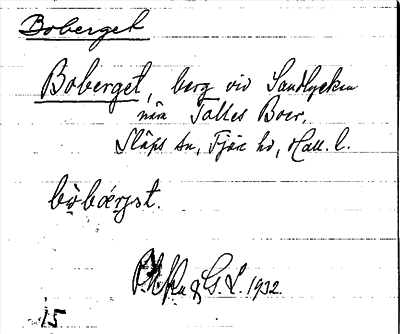 Boberget
Boberget, berg vid Sandlyckan
nära Tolles Boer,
Släps sn, Fjäre hd, Hall. l.
bò̩bǽrjət.
& G. L. 1932.
15